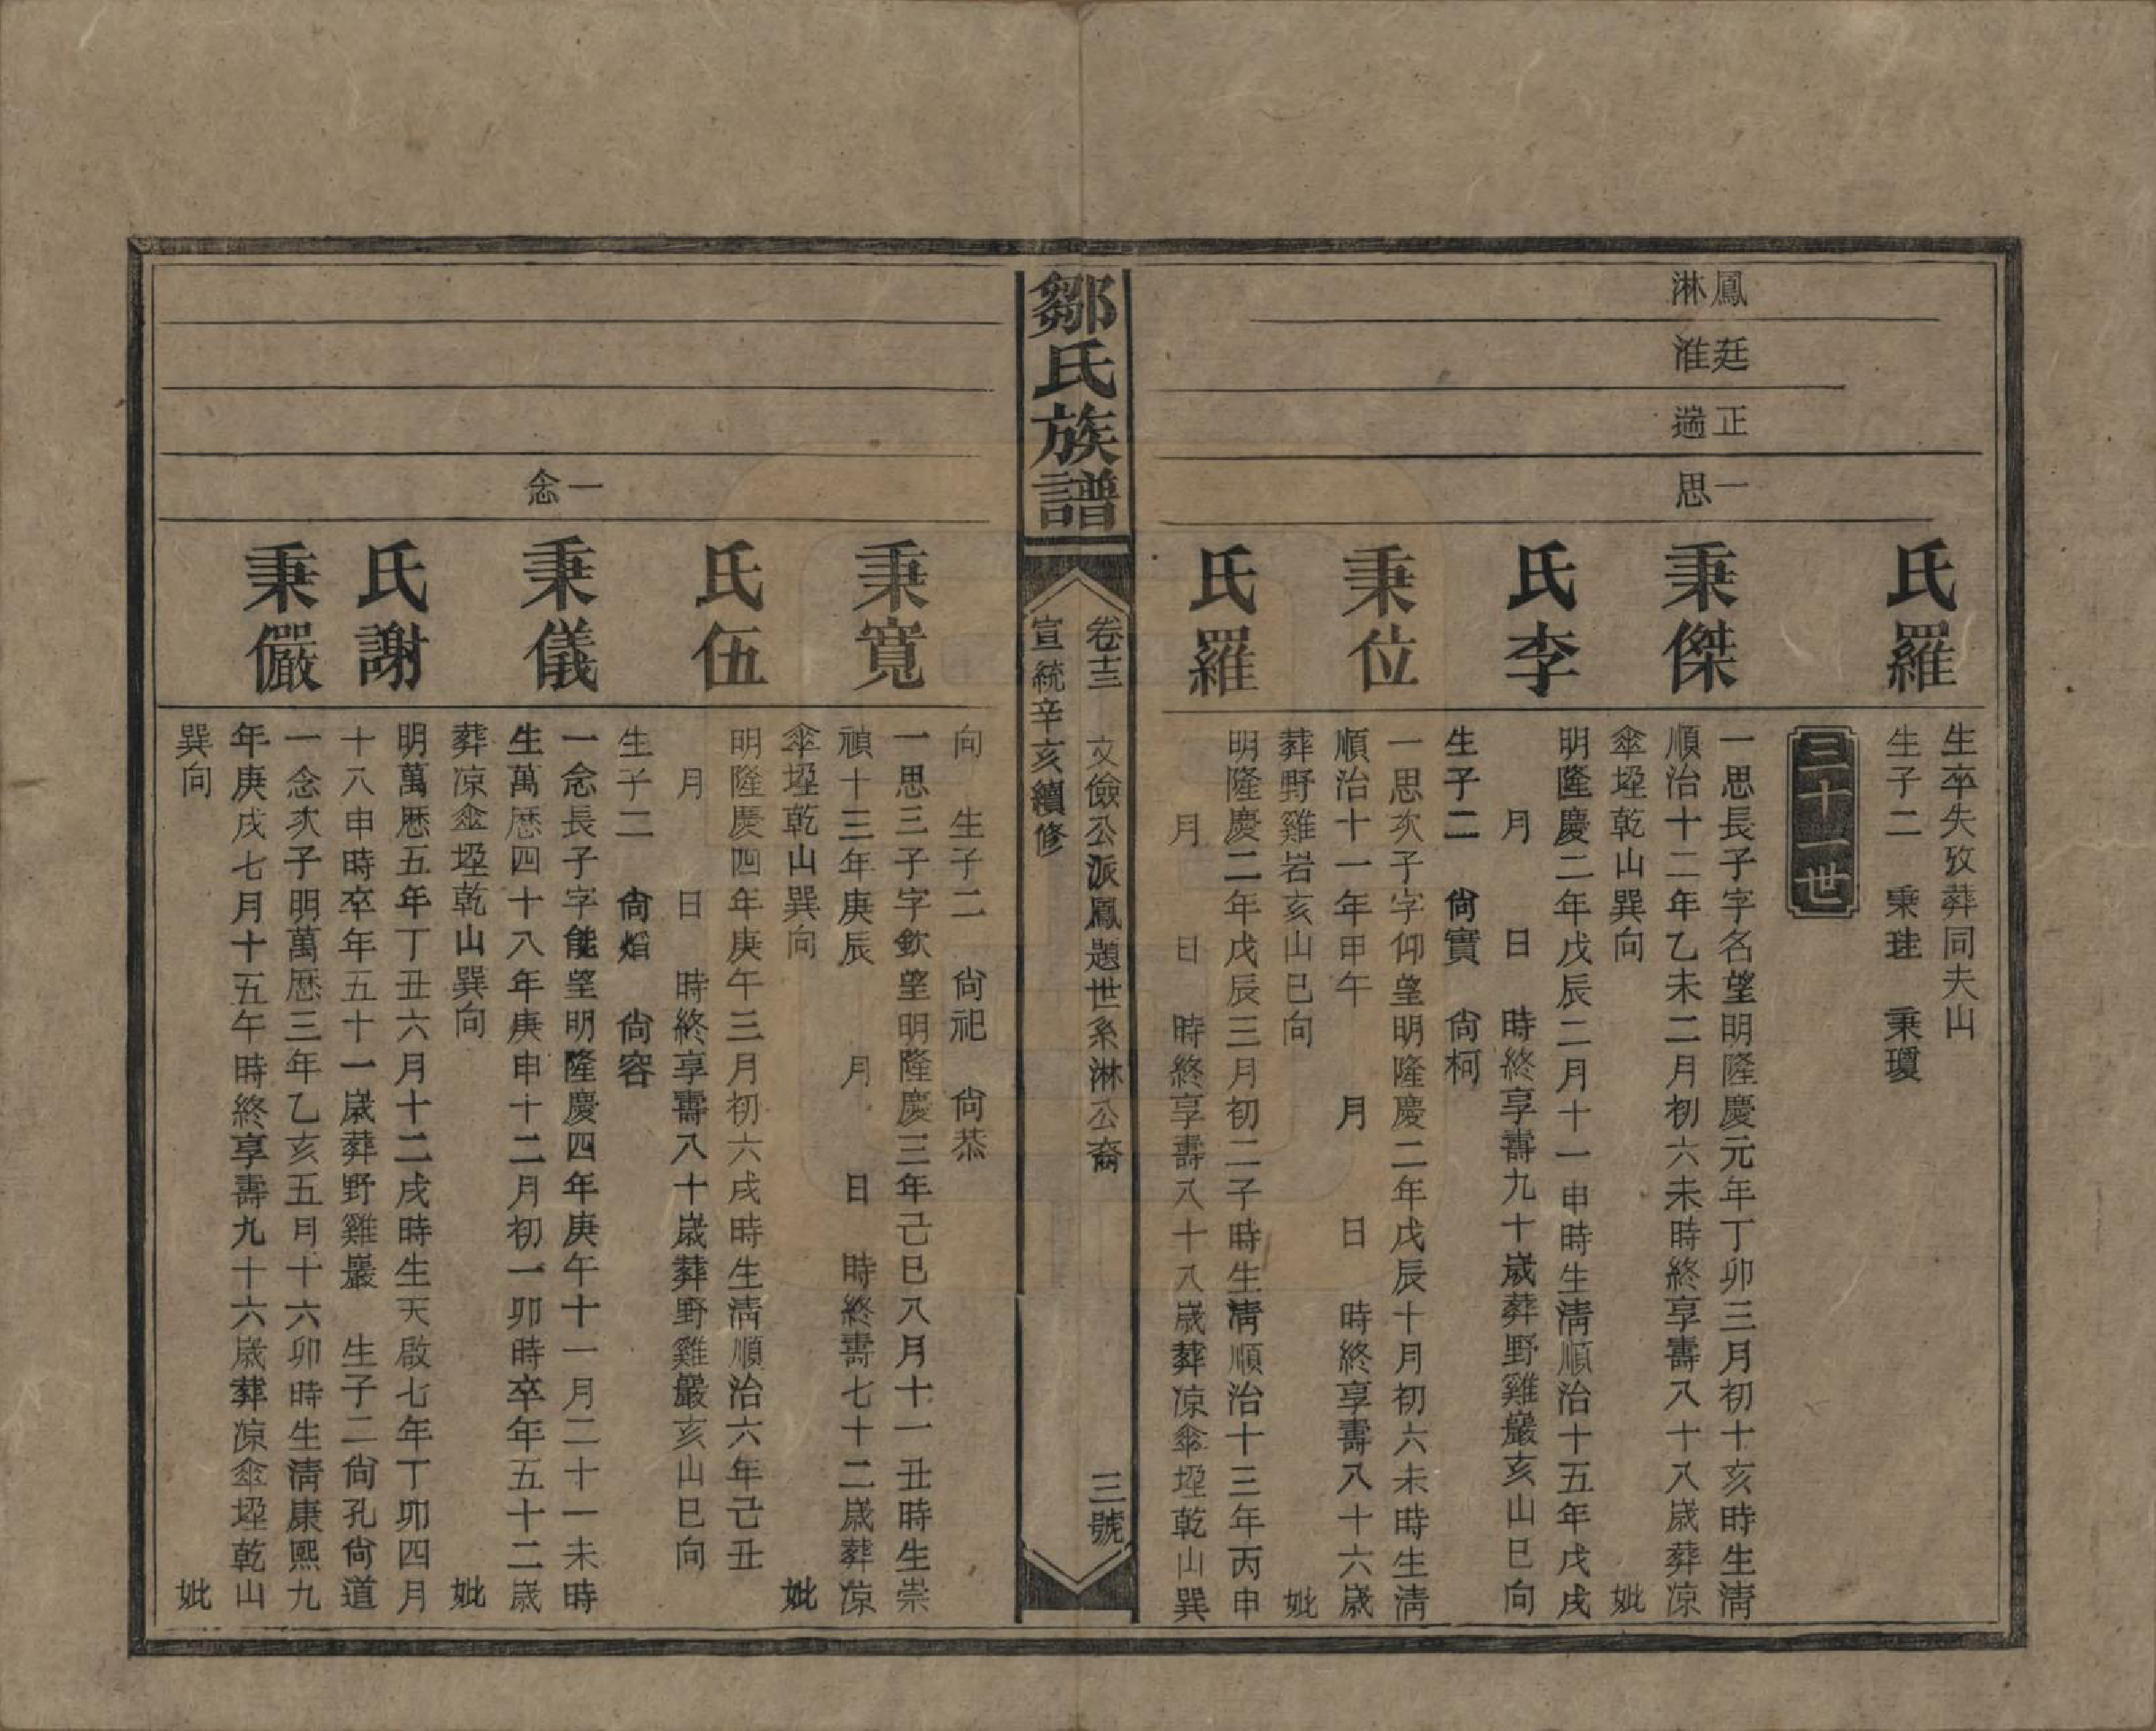 氏羅
生卒失攷葬同夫山
生子二　秉珪　秉瓊
三十一世
鳳廷正一
淋淮遄思
秉傑
一思長子字名望明隆慶元年丁卯三月初十亥時生淸
順治十二年乙未二月初六未時終享壽八十八歲葬凉
傘㘭乾山巽向　妣
氏李
明隆慶二年戊辰二月十一申時生淸順治十五年戊戌
月　日　時終享壽九十歲葬野雞巖亥山巳向
生子二　尙實　尙柯
秉位
一思次子字仰望明隆慶二年戊辰十月初六未時生淸
順治十一年甲午　月　日　時終享壽八十六歲
葬野雞岩亥山巳向　妣
氏羅
明隆慶二年戊辰三月初二子時生淸順治十三年丙申
月　日　時終享壽八十八歲葬凉傘㘭乾山巽
鄒氏族譜
卷十三　文儉公派鳳題世系淋公裔　三號
宣統辛亥續修
向　生子二　尙祀　尙恭
秉寬
一思三子字欽望明隆慶三年己巳八月十一丑時生崇
禎十三年庚辰　月　日　時終壽七十二歲葬凉
傘㘭乾山巽向　妣
氏伍
明隆慶四年庚午三月初六戌時生淸順治六年己丑
月　日　時終享壽八十歲葬野雞巖亥山巳向
生子二　尙熖　尙容
一念
秉儀
一念長子字能望明隆慶四年庚午十一月二十一未時
生萬歷四十八年庚申十二月初一卯時卒年五十二歲
葬凉傘㘭乾山巽向　妣
氏謝
明萬歷五年丁丑六月十二戌時生天啟七年丁卯四月
十八申時卒年五十一歲葬野雞巖　生子二尙孔尙道
秉儼
一念次子明萬歷三年乙亥五月十六卯時生淸康熙九
年庚戌七月十五午時終享壽九十六歲葬凉傘㘭乾山
巽向　妣